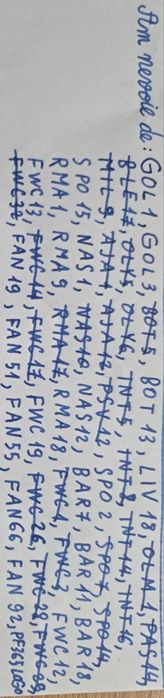 Am nevoie de: GOL 1, GOL 3, BOT 5, BOT 13, LIV 18, OLM 1, PAS 14,
BLE 17, OLY 5, OLY 6, TNT 5, TNT 8, TNT 14, TNT 16,
MIL 9, AJA 1, AJA 12, PSV 12, SPO 2, SPO 7, SPO 14,
SPO 15, NAS 1, NAS 10, NAS 12, BAR 7, BAR 11, BAR 18,
RMA 1, RMA 9, RMA 17, RMA 18, FWC 1, FWC 3, FWC 12,
FWC 13, FWC 14, FWC 17, FWC 19, FWC 26, FWC 28, FWC 30,
FWC 32, FAN 19, FAN 51, FAN 55, FAN 66, FAN 92,